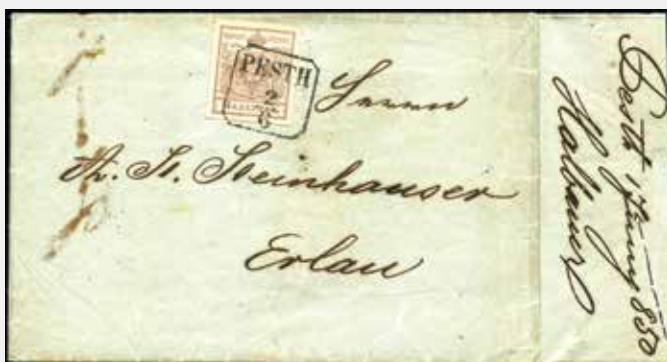 PESTH
2
6
Herrn
A. St. Steinhauser
Erlau
Pesth 1 Juny 850
Halbauer